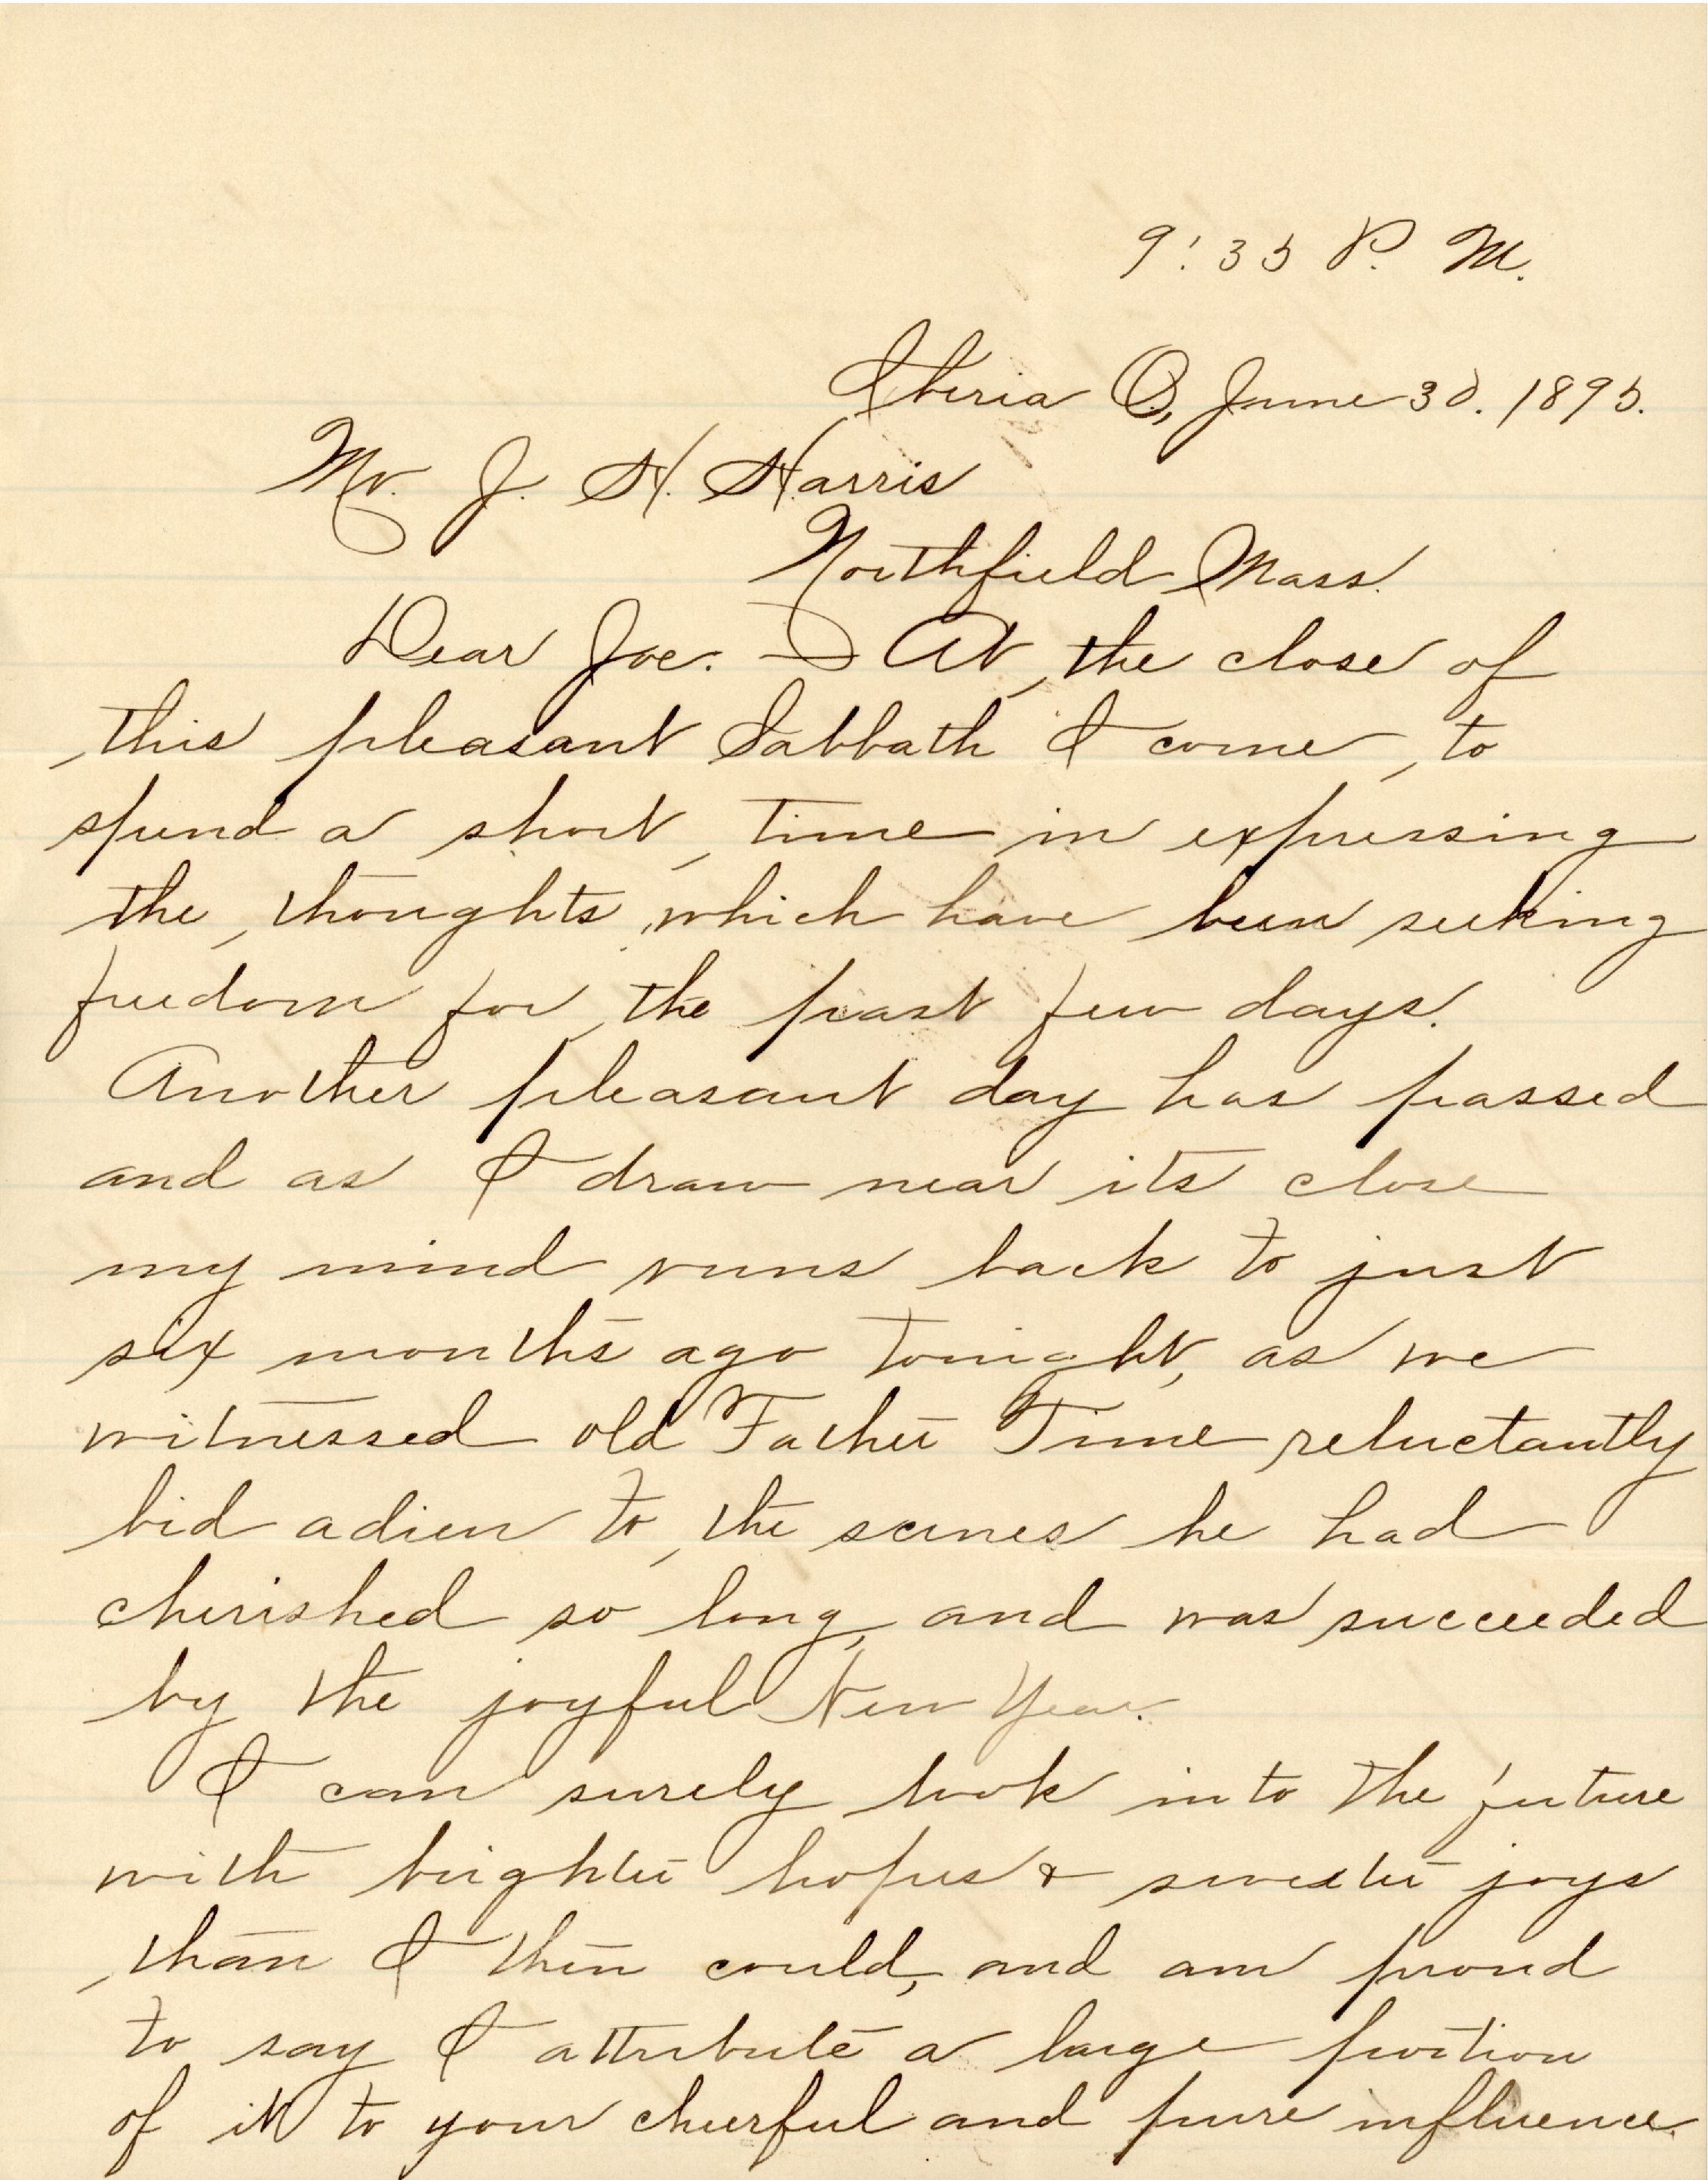 9:35 P. M.
Iberia O, June 30. 1895.
Mr. J. H. Harris
Northfield Mass.
Dear Joe. — At the close of
this pleasant Sabbath I come to
spend a short time in expressing
the thoughts which have been seeking
freedom for the past few days.
Another pleasant day has passed
and as I draw near its close
my mind runs back to just
six months ago tonight, as we
witnessed old Father Time reluctantly
bid adieu to the scenes he had
cherished so long, and was succeeded
by the joyful New Year.
I can surely look into the future
with brighter hopes & sweeter joys
than I then could, and am proud
to say I attribute a large portion
of it to your cheerful and pure influence.